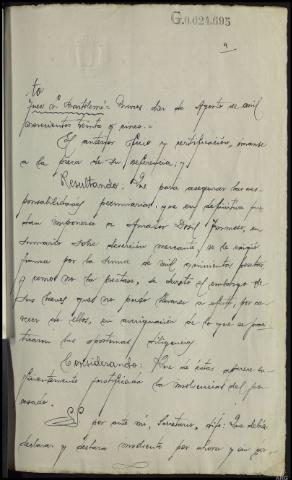 G.0.024.695
9
to
Juez Sr. Bartolomé = Nueve de Agosto de mil
novecientos treinta y cinco.=
El anterior oficio y certificación, únanse
a la pieza de su referencia; y
Resultando: Que para asegurar las res-
ponsabilidades pecuniarias que en definitiva pue-
dan imponerse a Amador Formoso, en
sumario sobre deserción mercante, se le exigió
fianza por la suma de mil quinientas pesetas,
y como no la prestase, se decretó el embargo de
sus bienes que no pudo llevarse a efecto, por ca-
recer de ellos, en averiguación de lo que se prac-
ticaron las oportunas diligencias
Considerando: Que de éstas aparece su-
ficientemente justificada la insolvencia del pro-
cesado.
S.S. por ante mí, Secretario, dijo: Que debía
declarar y declara insolvente por ahora y sin per-